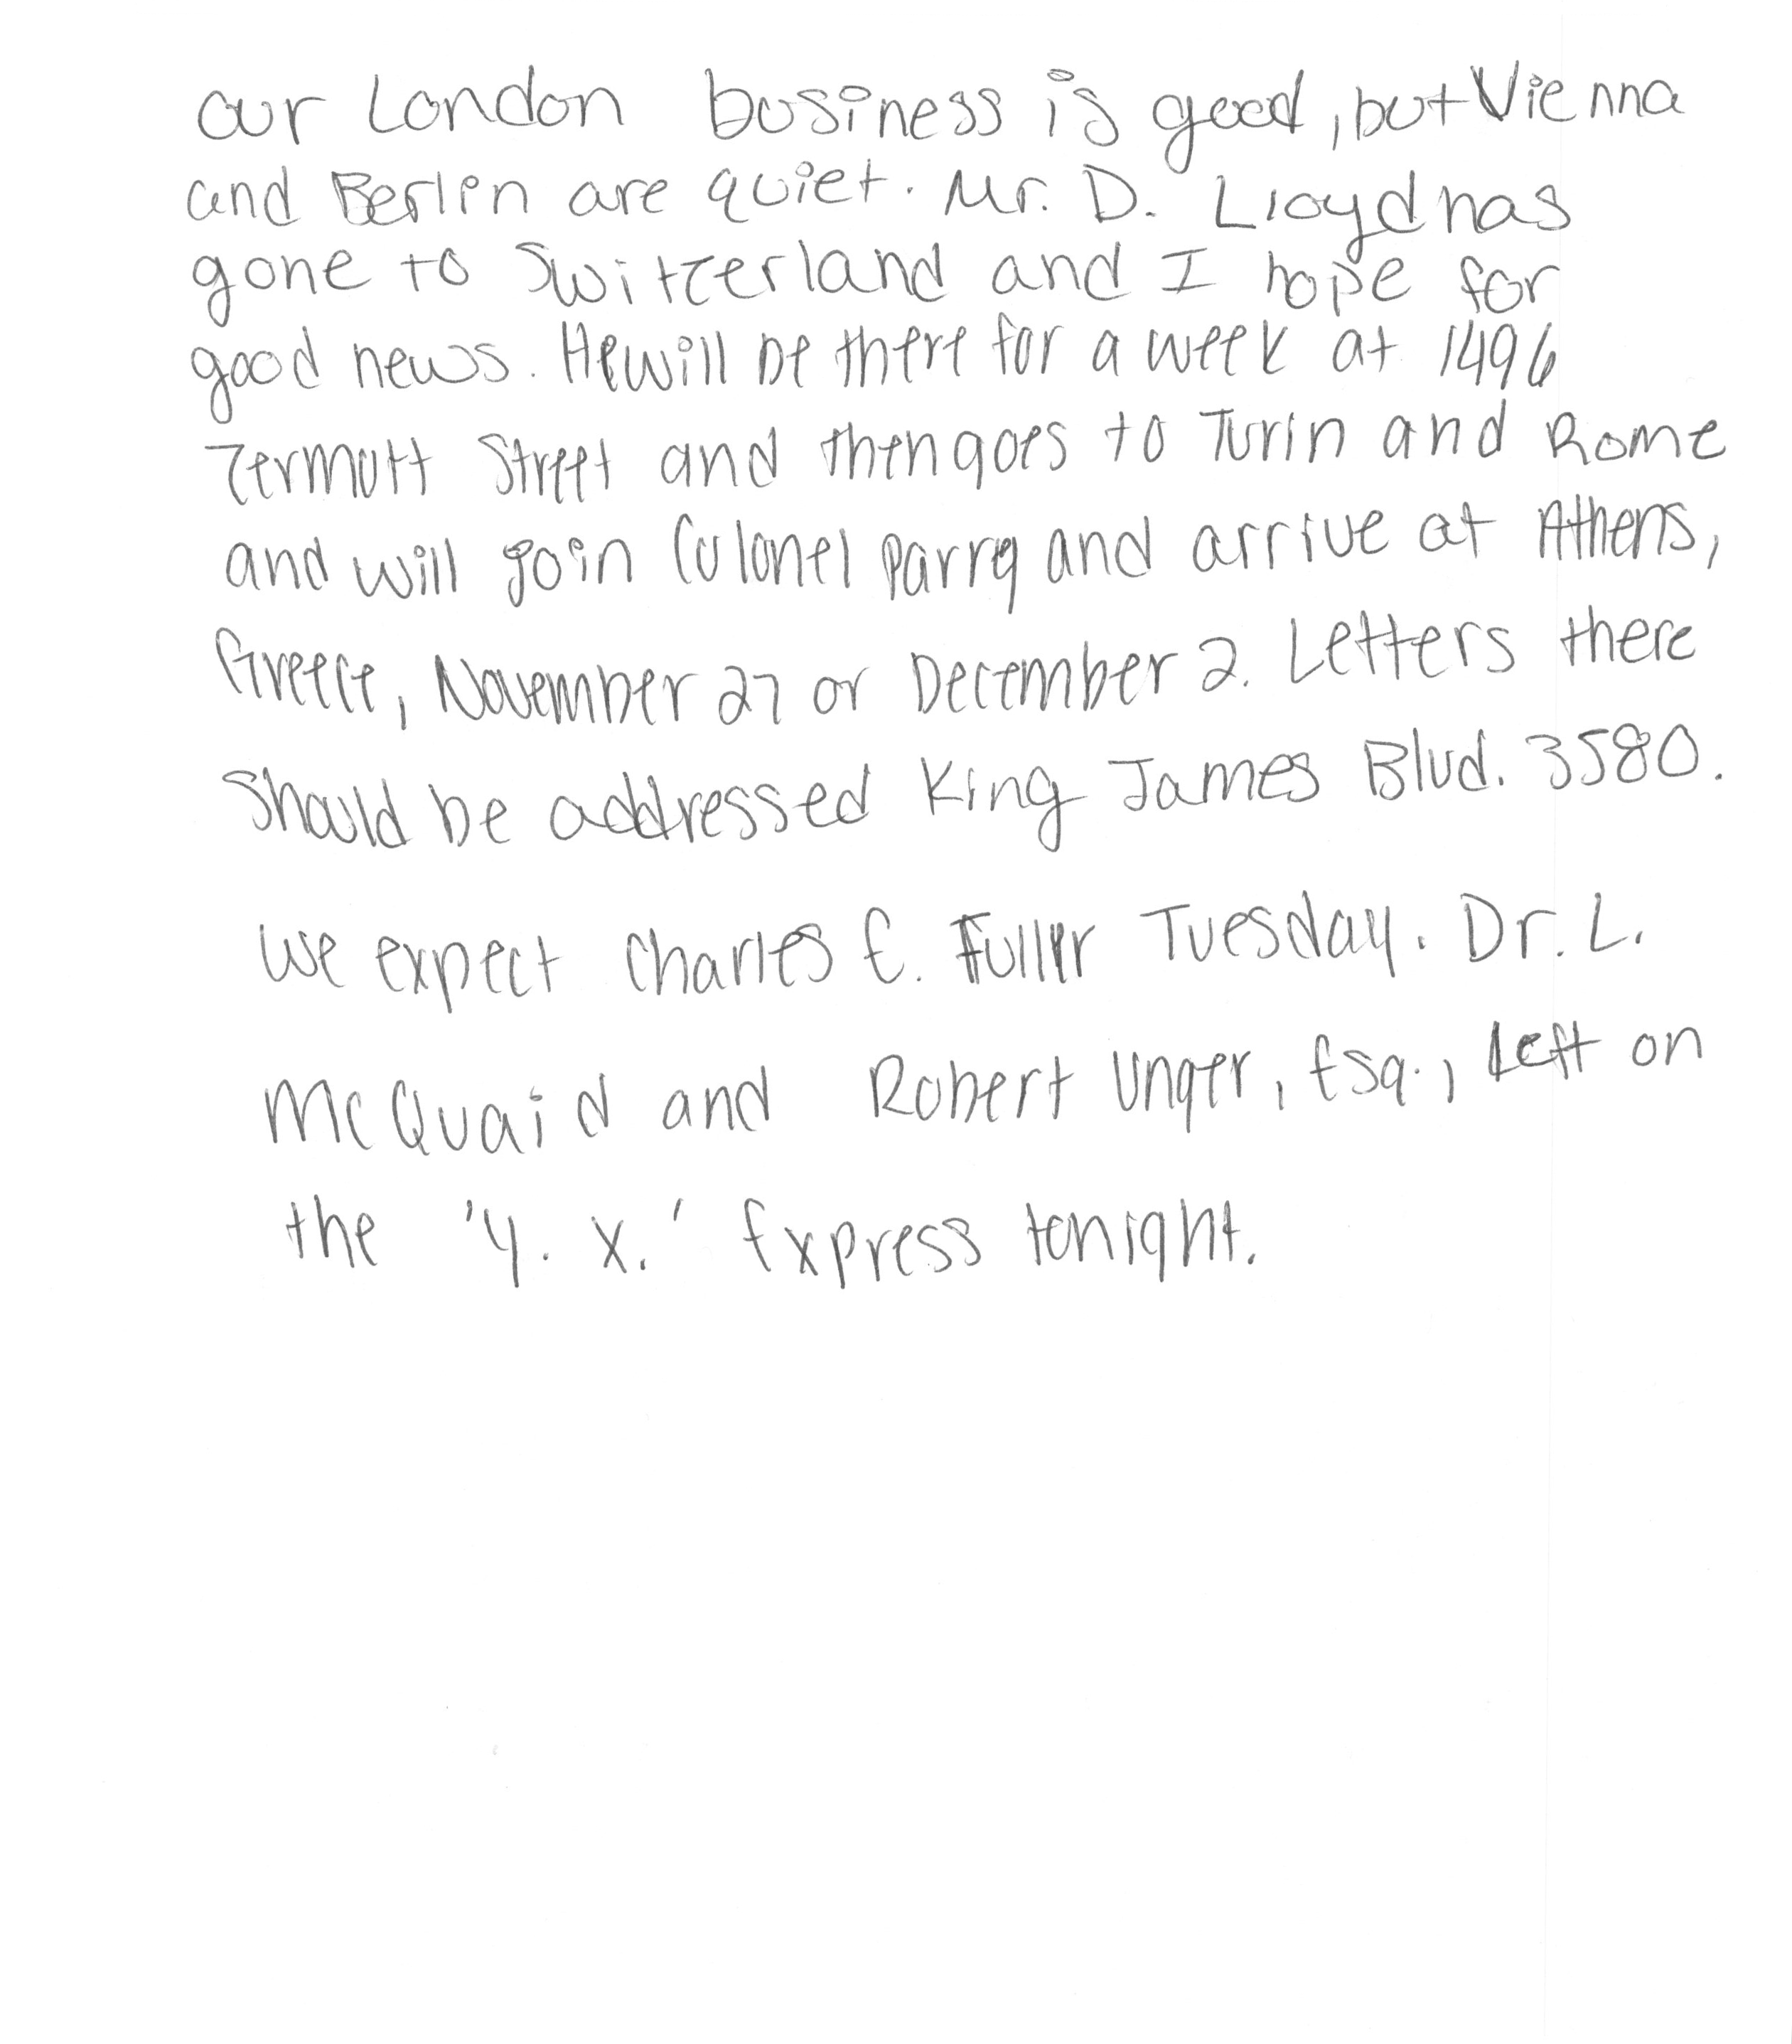 our London business is good, but Vienna
and Berlin are quiet. Mr. D. Lloyd has
gone to Switzerland and I hope for
good news. He will be there for a week at 1496
Zermott Street and then goes to Turin and Rome
and will join Colonel Parry and arrive at Athens,
Greece, November 27 or December 2. Letters there
should be addressed King James Blvd. 3580.
We expect Charles E. Fuller Tuesday. Dr. L.
McQuaid and Robert Unger, Esq., left on
the 'Y. X.' Express tonight.